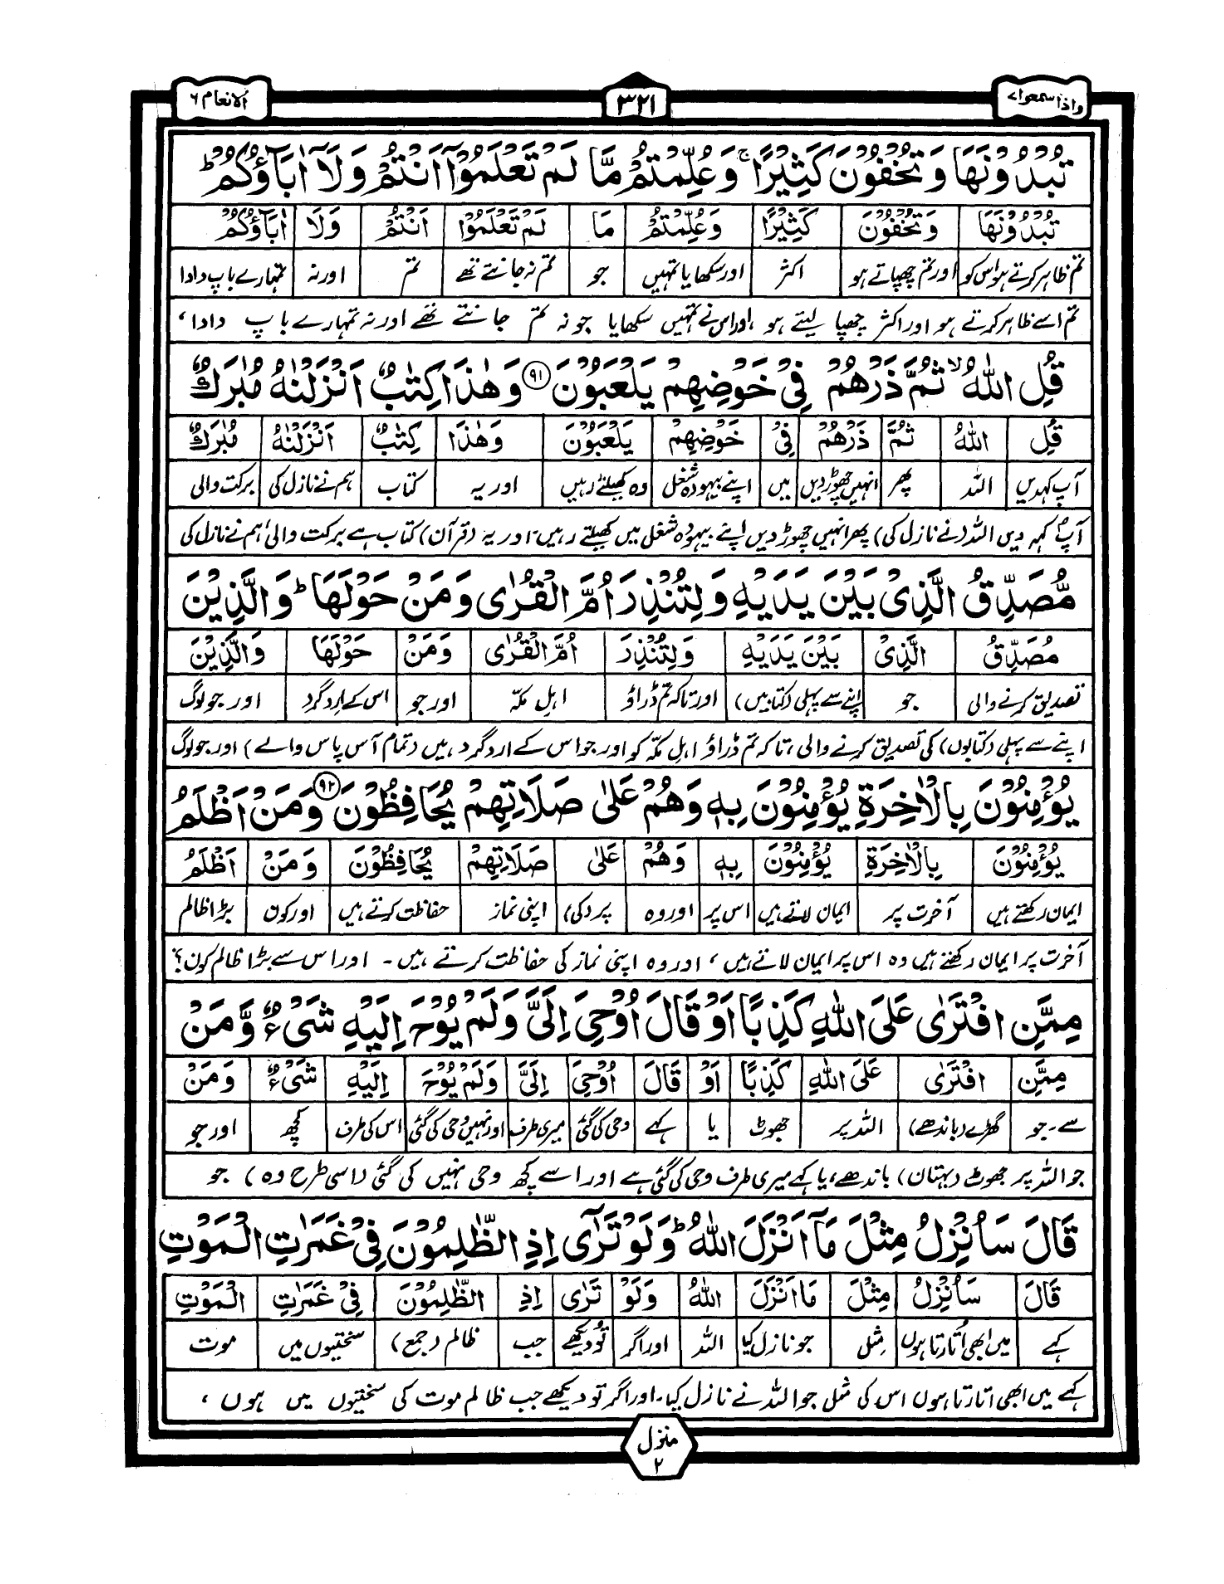 واذا سمعوا ۷ ۳۲۱ الانعام ۶
تُبْدُوْنَهَا وَتُخْفُوْنَ كَثِیْرًا ۚ وَعُلِّمْتُمْ مَّا لَمْ تَعْلَمُوْۤا اَنْتُمْ وَلَاۤ اٰبَآؤُكُمْ ؕ
تُبْدُوْنَهَا وَتُخْفُوْنَ كَثِیْرًا وَعُلِّمْتُمْ مَا لَمْ تَعْلَمُوْا اَنْتُمْ وَلَا اٰبَآؤُكُمْ
تم ظاہر کرتے ہو اس کو اور تم چھپاتے ہو اکثر اور سکھایا تمہیں جو تم نہ جانتے تھے تم اور نہ تمہارے باپ دادا
تم اسے ظاہر کرتے ہو اور اکثر چھپا لیتے ہو، اور اس نے تمہیں سکھایا جو نہ تم جانتے تھے اور نہ تمہارے باپ دادا،
قُلِ اللّٰهُ ۙ ثُمَّ ذَرْهُمْ فِیْ خَوْضِهِمْ یَلْعَبُوْنَ ﴿۹۱﴾ وَهٰذَا كِتٰبٌ اَنْزَلْنٰهُ مُبٰرَكٌ
قُلِ اللّٰهُ ثُمَّ ذَرْهُمْ فِیْ خَوْضِهِمْ یَلْعَبُوْنَ وَهٰذَا كِتٰبٌ اَنْزَلْنٰهُ مُبٰرَكٌ
آپ کہدیں اللہ پھر انہیں چھوڑ دیں میں اپنے بیہودہ شغل وہ کھیلتے رہیں اور یہ کتاب ہم نے نازل کی برکت والی
آپؐ کہہ دیں اللہ (نے نازل کی) پھر انہیں چھوڑ دیں اپنے بیہودہ شغل میں کھیلتے رہیں۔ اور یہ (قرآن) کتاب ہے برکت والی، ہم نے نازل کی
مُّصَدِّقُ الَّذِیْ بَیْنَ یَدَیْهِ وَلِتُنْذِرَ اُمَّ الْقُرٰی وَمَنْ حَوْلَهَا ؕ وَالَّذِیْنَ
مُصَدِّقُ الَّذِیْ بَیْنَ یَدَیْهِ وَلِتُنْذِرَ اُمَّ الْقُرٰی وَمَنْ حَوْلَهَا وَالَّذِیْنَ
تصدیق کرنے والی جو اپنے سے پہلی (کتابیں) اور تاکہ تم ڈراؤ اہلِ مکّہ اور جو اس کے ارد گرد اور جو لوگ
اپنے سے پہلی (کتابوں) کی تصدیق کرنے والی، تاکہ تم ڈراؤ اہلِ مکّہ کو اور جو اس کے ارد گرد ہیں (تمام آس پاس والے) اور جو لوگ
یُؤْمِنُوْنَ بِالْاٰخِرَةِ یُؤْمِنُوْنَ بِهٖ وَهُمْ عَلٰی صَلَاتِهِمْ یُحَافِظُوْنَ ﴿۹۲﴾ وَمَنْ اَظْلَمُ
یُؤْمِنُوْنَ بِالْاٰخِرَةِ یُؤْمِنُوْنَ بِهٖ وَهُمْ عَلٰی صَلَاتِهِمْ یُحَافِظُوْنَ وَمَنْ اَظْلَمُ
ایمان رکھتے ہیں آخرت پر ایمان لاتے ہیں اس پر اور وہ پر (کی) اپنی نماز حفاظت کرتے ہیں اور کون بڑا ظالم
آخرت پر ایمان رکھتے ہیں وہ اس پر ایمان لاتے ہیں، اور وہ اپنی نماز کی حفاظت کرتے ہیں۔ اور اس سے بڑا ظالم کون؟
مِمَّنِ افْتَرٰی عَلَی اللّٰهِ كَذِبًا اَوْ قَالَ اُوْحِیَ اِلَیَّ وَلَمْ یُوْحَ اِلَیْهِ شَیْءٌ وَّمَنْ
مِمَّنِ افْتَرٰی عَلَی اللّٰهِ كَذِبًا اَوْ قَالَ اُوْحِیَ اِلَیَّ وَلَمْ یُوْحَ اِلَیْهِ شَیْءٌ وَمَنْ
سے۔جو گھڑے (باندھے) اللہ پر جھوٹ یا کہے وحی کی گئی میری طرف اور نہیں وحی کی گئی اس کی طرف کچھ اور جو
جو اللہ پر جھوٹ (بہتان) باندھے، یا کہے میری طرف وحی کی گئی ہے اور اسے کچھ وحی نہیں کی گئی (اسی طرح وہ) جو
قَالَ سَاُنْزِلُ مِثْلَ مَاۤ اَنْزَلَ اللّٰهُ ؕ وَلَوْ تَرٰۤی اِذِ الظّٰلِمُوْنَ فِیْ غَمَرٰتِ الْمَوْتِ
قَالَ سَاُنْزِلُ مِثْلَ مَا اَنْزَلَ اللّٰهُ وَلَوْ تَرٰی اِذِ الظّٰلِمُوْنَ فِیْ غَمَرٰتِ الْمَوْتِ
کہے میں ابھی اُتارتا ہوں مثل جو نازل کیا اللہ اور اگر تو دیکھے جب ظالم (جمع) سختیوں میں موت
کہے میں ابھی اتارتا ہوں اس کی مثل جو اللہ نے نازل کیا۔ اور اگر تو دیکھے جب ظالم موت کی سختیوں میں ہوں،
منزل
۲